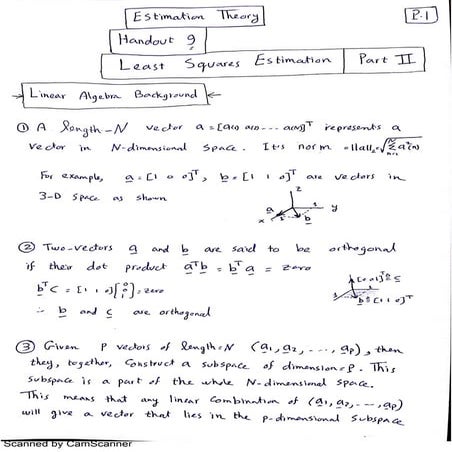 Estimation Theory
P.1
Handout 9
Least Squares Estimation Part II
Linear Algebra Background
① A length-N vector a = [a(1) a(2) ---- a(N)]ᵀ represents a
vector in N-dimensional space. It's norm = ||a||₂ = √Σ a²(n)
n=1
For example, a = [1 0 0]ᵀ, b = [1 1 0]ᵀ are vectors in
3-D space as shown
z
y
x
a
b
② Two-vectors a and b are said to be orthogonal
if their dot product aᵀb = bᵀa = zero
bᵀc = [1 1 0][0 0 1] = zero
[0 0 1]ᵀ = c
b = [1 1 0]ᵀ
∴ b and c are orthogonal
③ Given P vectors of length=N (a₁, a₂, ---, aₚ), then
they, together, construct a subspace of dimension=P. This
subspace is a part of the whole N-dimensional space.
This means that any linear combination of (a₁, a₂, ---, aₚ)
will give a vector that lies in the p-dimensional subspace
Scanned by CamScanner